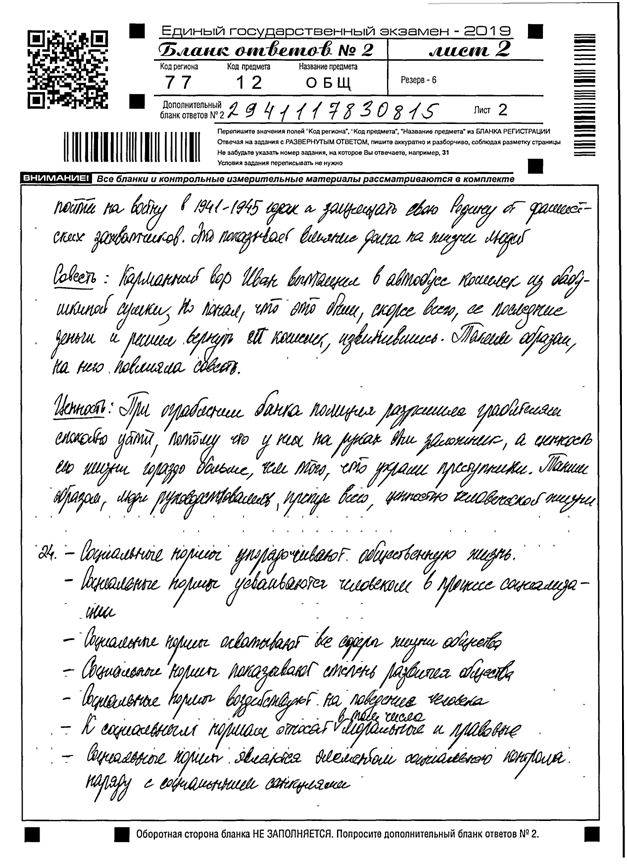 Единый государственный экзамен - 2019
Бланк ответов № 2 лист 2
Код региона Код предмета Название предмета
77 12 ОБЩ Резерв - 6
Дополнительный бланк ответов № 2 2941117830815 Лист 2
Перепишите значения полей "Код региона", "Код предмета", "Название предмета" из БЛАНКА РЕГИСТРАЦИИ
Отвечая на задания с РАЗВЕРНУТЫМ ОТВЕТОМ, пишите аккуратно и разборчиво, соблюдая разметку страницы
Не забудьте указать номер задания, на которое Вы отвечаете, например, 31
Условия задания переписывать не нужно
ВНИМАНИЕ! Все бланки и контрольные измерительные материалы рассматриваются в комплекте
пойти на войну в 1941-1945 годах и защищать свою Родину от фашист-
ских захватчиков. Это показывает влияние долга на жизни людей
Совесть: Карманный вор Иван вытащил в автобусе кошелек из бабу-
шкиной сумки, но понял, что это были, скорее всего, ее последние
деньги и решил вернуть ей кошелек, извинившись. Таким образом,
на него повлияла совесть.
Ценность: При ограблении банка полиция разрешила грабителям
спокойно уйти, потому что у них на руках был заложник, а ценность
его жизни гораздо больше, чем того, что украли преступники. Таким
образом, люди руководствовались, прежде всего, ценностью человеческой жизни
24. - Социальные нормы упорядочивают общественную жизнь.
- Социальные нормы усваиваются человеком в процессе социализа-
ции
- Социальные нормы охватывают все сферы жизни общества
- Социальные нормы показывают степень развития общества
- Социальные нормы воздействуют на поведение человека
- К социальным нормам относят в том числе моральные и правовые
- Социальные нормы являются элементом социального контроля
наряду с социальными санкциями
Оборотная сторона бланка НЕ ЗАПОЛНЯЕТСЯ. Попросите дополнительный бланк ответов № 2.